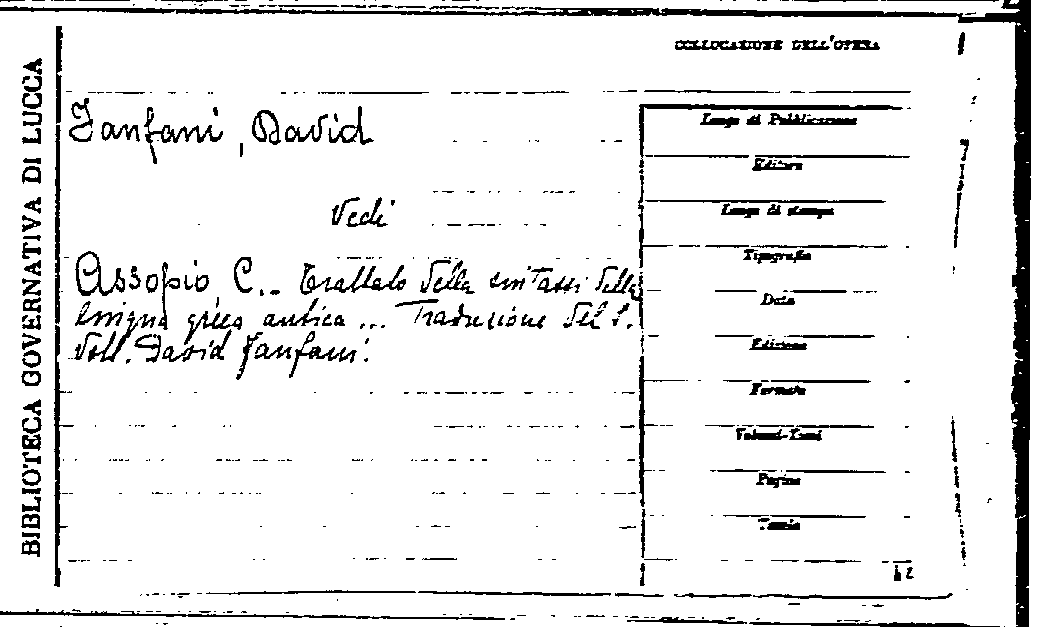 BIBLIOTECA GOVERNATIVA DI LUCCA
COLLOCAZIONE DELL'OPERA
Fanfani, David
Vedi
Assopio, C.. Trattato della sintassi della
lingua greca antica ... Traduzione del
dott. David Fanfani.
Luogo di Pubblicazione
Editore
Luogo di stampa
Tipografia
Data
Edizione
Formato
Volumi-Tomi
Pagine
Tavole